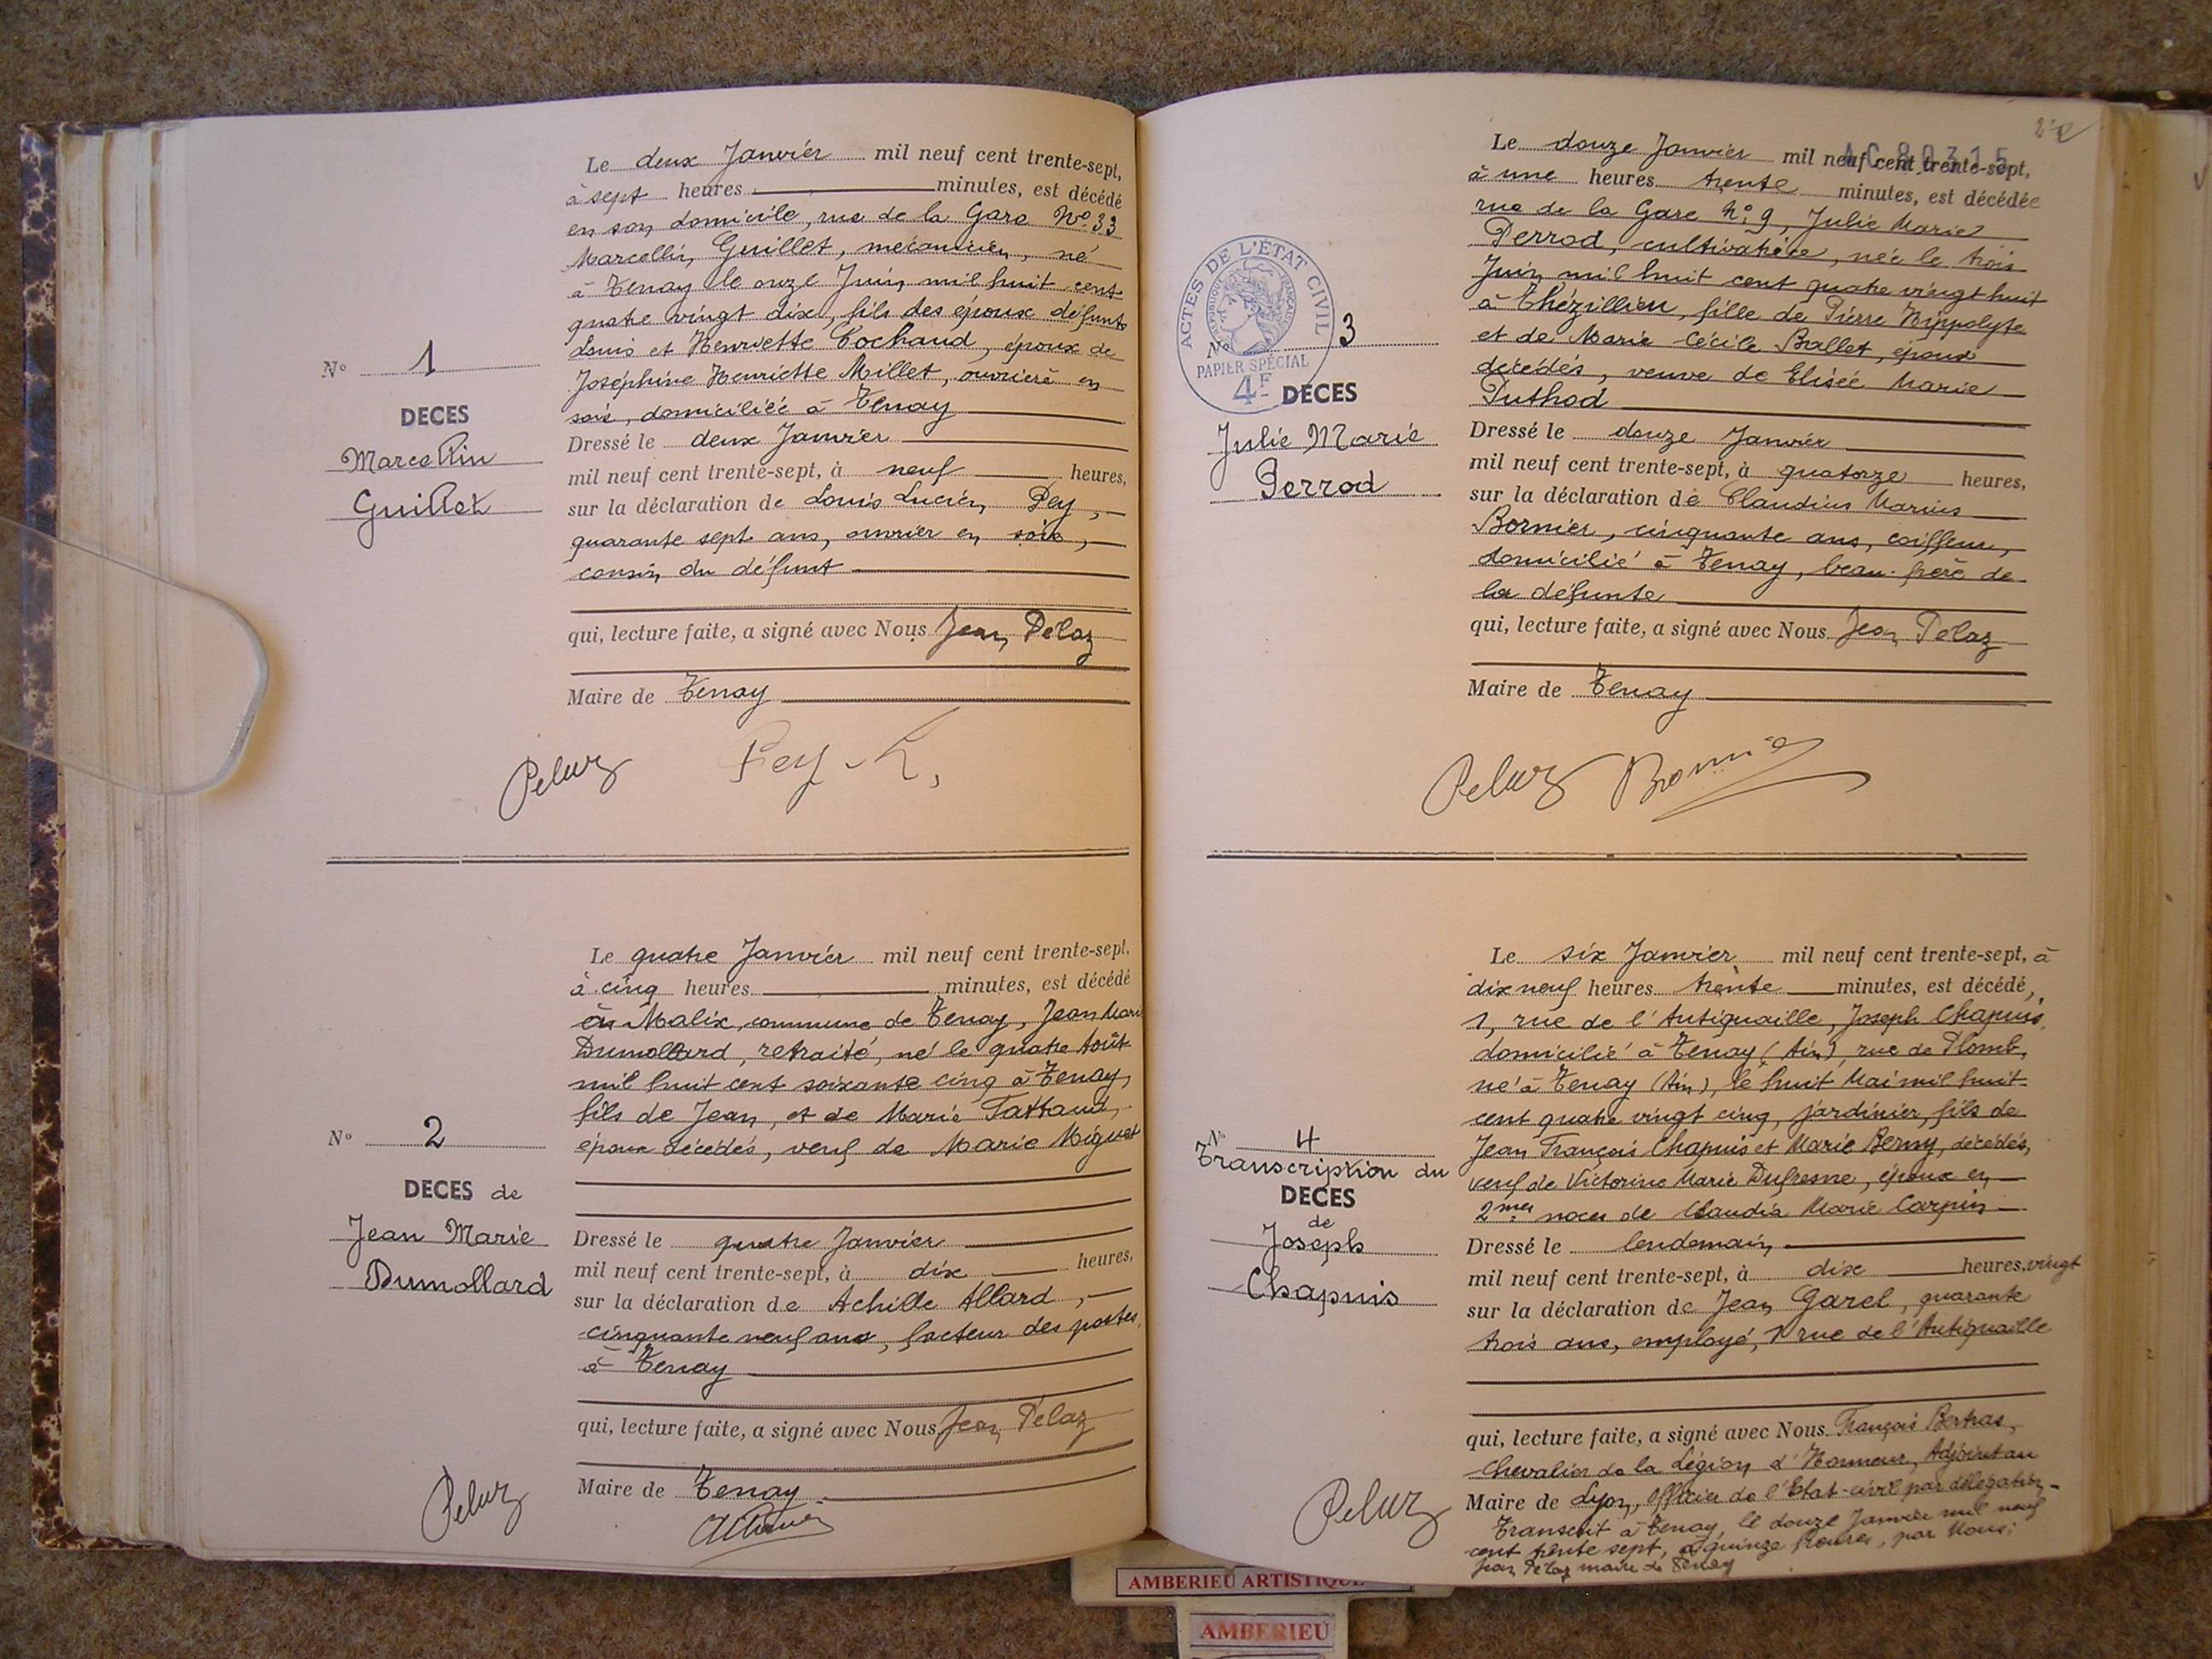 Le deux Janvier mil neuf cent trente-sept,
à sept heures minutes, est décédé
en son domicile, rue de la Gare No. 33
Marcellin Guillet, mécanicien, né
à Tenay le onze Juin mil huit cent
quatre vingt dix, fils des époux défunts
Louis et Henriette Cochaud, époux de
Joséphine Henriette Millet, ouvrière en
soie, domiciliée à Tenay
No 1
DECES
Marcellin
Guillet
Dressé le deux Janvier
mil neuf cent trente-sept, à neuf heures,
sur la déclaration de Louis Lucien Pey,
quarante sept ans, ouvrier en soie,
cousin du défunt
qui, lecture faite, a signé avec Nous Jean Pélaz
Maire de Tenay
Pelaz Pey
Le quatre Janvier mil neuf cent trente-sept,
à cinq heures minutes, est décédé
en Malix, commune de Tenay, Jean Marie
Dumollard, retraité, né le quatre Août
mil huit cent soixante cinq à Tenay,
fils de Jean, et de Marie Tattaud,
époux décédés, veuf de Marie Miguet
No 2
DECES de
Jean Marie
Dumollard
Dressé le quatre Janvier
mil neuf cent trente-sept, à dix heures,
sur la déclaration de Achille Allard,
cinquante neuf ans, facteur des postes,
à Tenay
qui, lecture faite, a signé avec Nous Jean Pélaz
Maire de Tenay
Pelaz
2
AC 80315
Le douze Janvier mil neuf cent trente-sept,
à une heures trente minutes, est décédée
rue de la Gare No 9, Julie Marie
Perrod, cultivatrice, née le trois
Juin mil huit cent quatre vingt huit
à Thézillieu, fille de Pierre Hippolyte
et de Marie Cécile Ballet, époux
décédés, veuve de Elisée Marie
Puthod
ACTES DE L'ÉTAT CIVIL
RÉPUBLIQUE FRANÇAISE
PAPIER SPÉCIAL
4F
No 3
DECES
Julie Marie
Perrod
Dressé le douze Janvier
mil neuf cent trente-sept, à quatorze heures,
sur la déclaration de Claudius Marius
Bornier, cinquante ans, coiffeur,
domicilié à Tenay, beau-frère de
la défunte
qui, lecture faite, a signé avec Nous Jean Pélaz
Maire de Tenay
Pelaz Bornier
Le six Janvier mil neuf cent trente-sept, à
dix neuf heures trente minutes, est décédé,
1, rue de l'Antiquaille, Joseph Chapuis,
domicilié à Tenay (Ain), rue de Plomb,
né à Tenay (Ain), le huit Mai mil huit
cent quatre vingt cinq, jardinier, fils de
Jean François Chapuis et Marie Berny, décédés,
veuf de Victorine Marie Dufresne, époux en
2mes noces de Claudia Marie Carpin
No 4
Transcription du
DECES
de
Joseph
Chapuis
Dressé le lendemain
mil neuf cent trente-sept, à dix heures, vingt
sur la déclaration de Jean Garel, quarante
trois ans, employé, 1 rue de l'Antiquaille
qui, lecture faite, a signé avec Nous François Bertras,
Chevalier de la Légion d'Honneur, Adjoint au
Maire de Lyon, officier de l'Etat-civil par délégation
Transcrit à Tenay, le douze Janvier mil neuf
cent trente sept, à quinze heures, par Nous,
Jean Pélaz maire de Tenay
Pelaz
AMBERIEU ARTISTIQUE
AMBERIEU